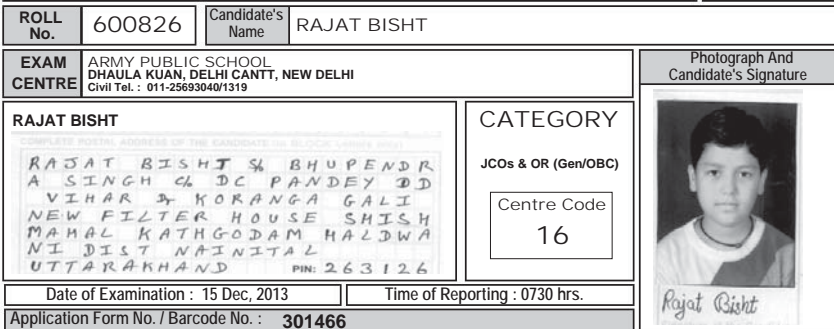 ROLL No. 600826 Candidate's Name RAJAT BISHT
EXAM CENTRE
ARMY PUBLIC SCHOOL
DHAULA KUAN, DELHI CANTT, NEW DELHI
Civil Tel. : 011-25693040/1319
Photograph And
Candidate's Signature
RAJAT BISHT
COMPLETE POSTAL ADDRESS OF THE CANDIDATE (in BLOCK Letters only)
RAJAT BISHT S/o BHUPENDR
A SINGH C/o DC PANDEY DD
VIHAR KORANGA GALI
NEW FILTER HOUSE SHISH
MAHAL KATHGODAM HALDWA
NI DIST NAINITAL
UTTARAKHAND PIN: 263126
CATEGORY
JCOs & OR (Gen/OBC)
Centre Code
16
Rajat Bisht
Date of Examination : 15 Dec, 2013 Time of Reporting : 0730 hrs.
Application Form No. / Barcode No. : 301466